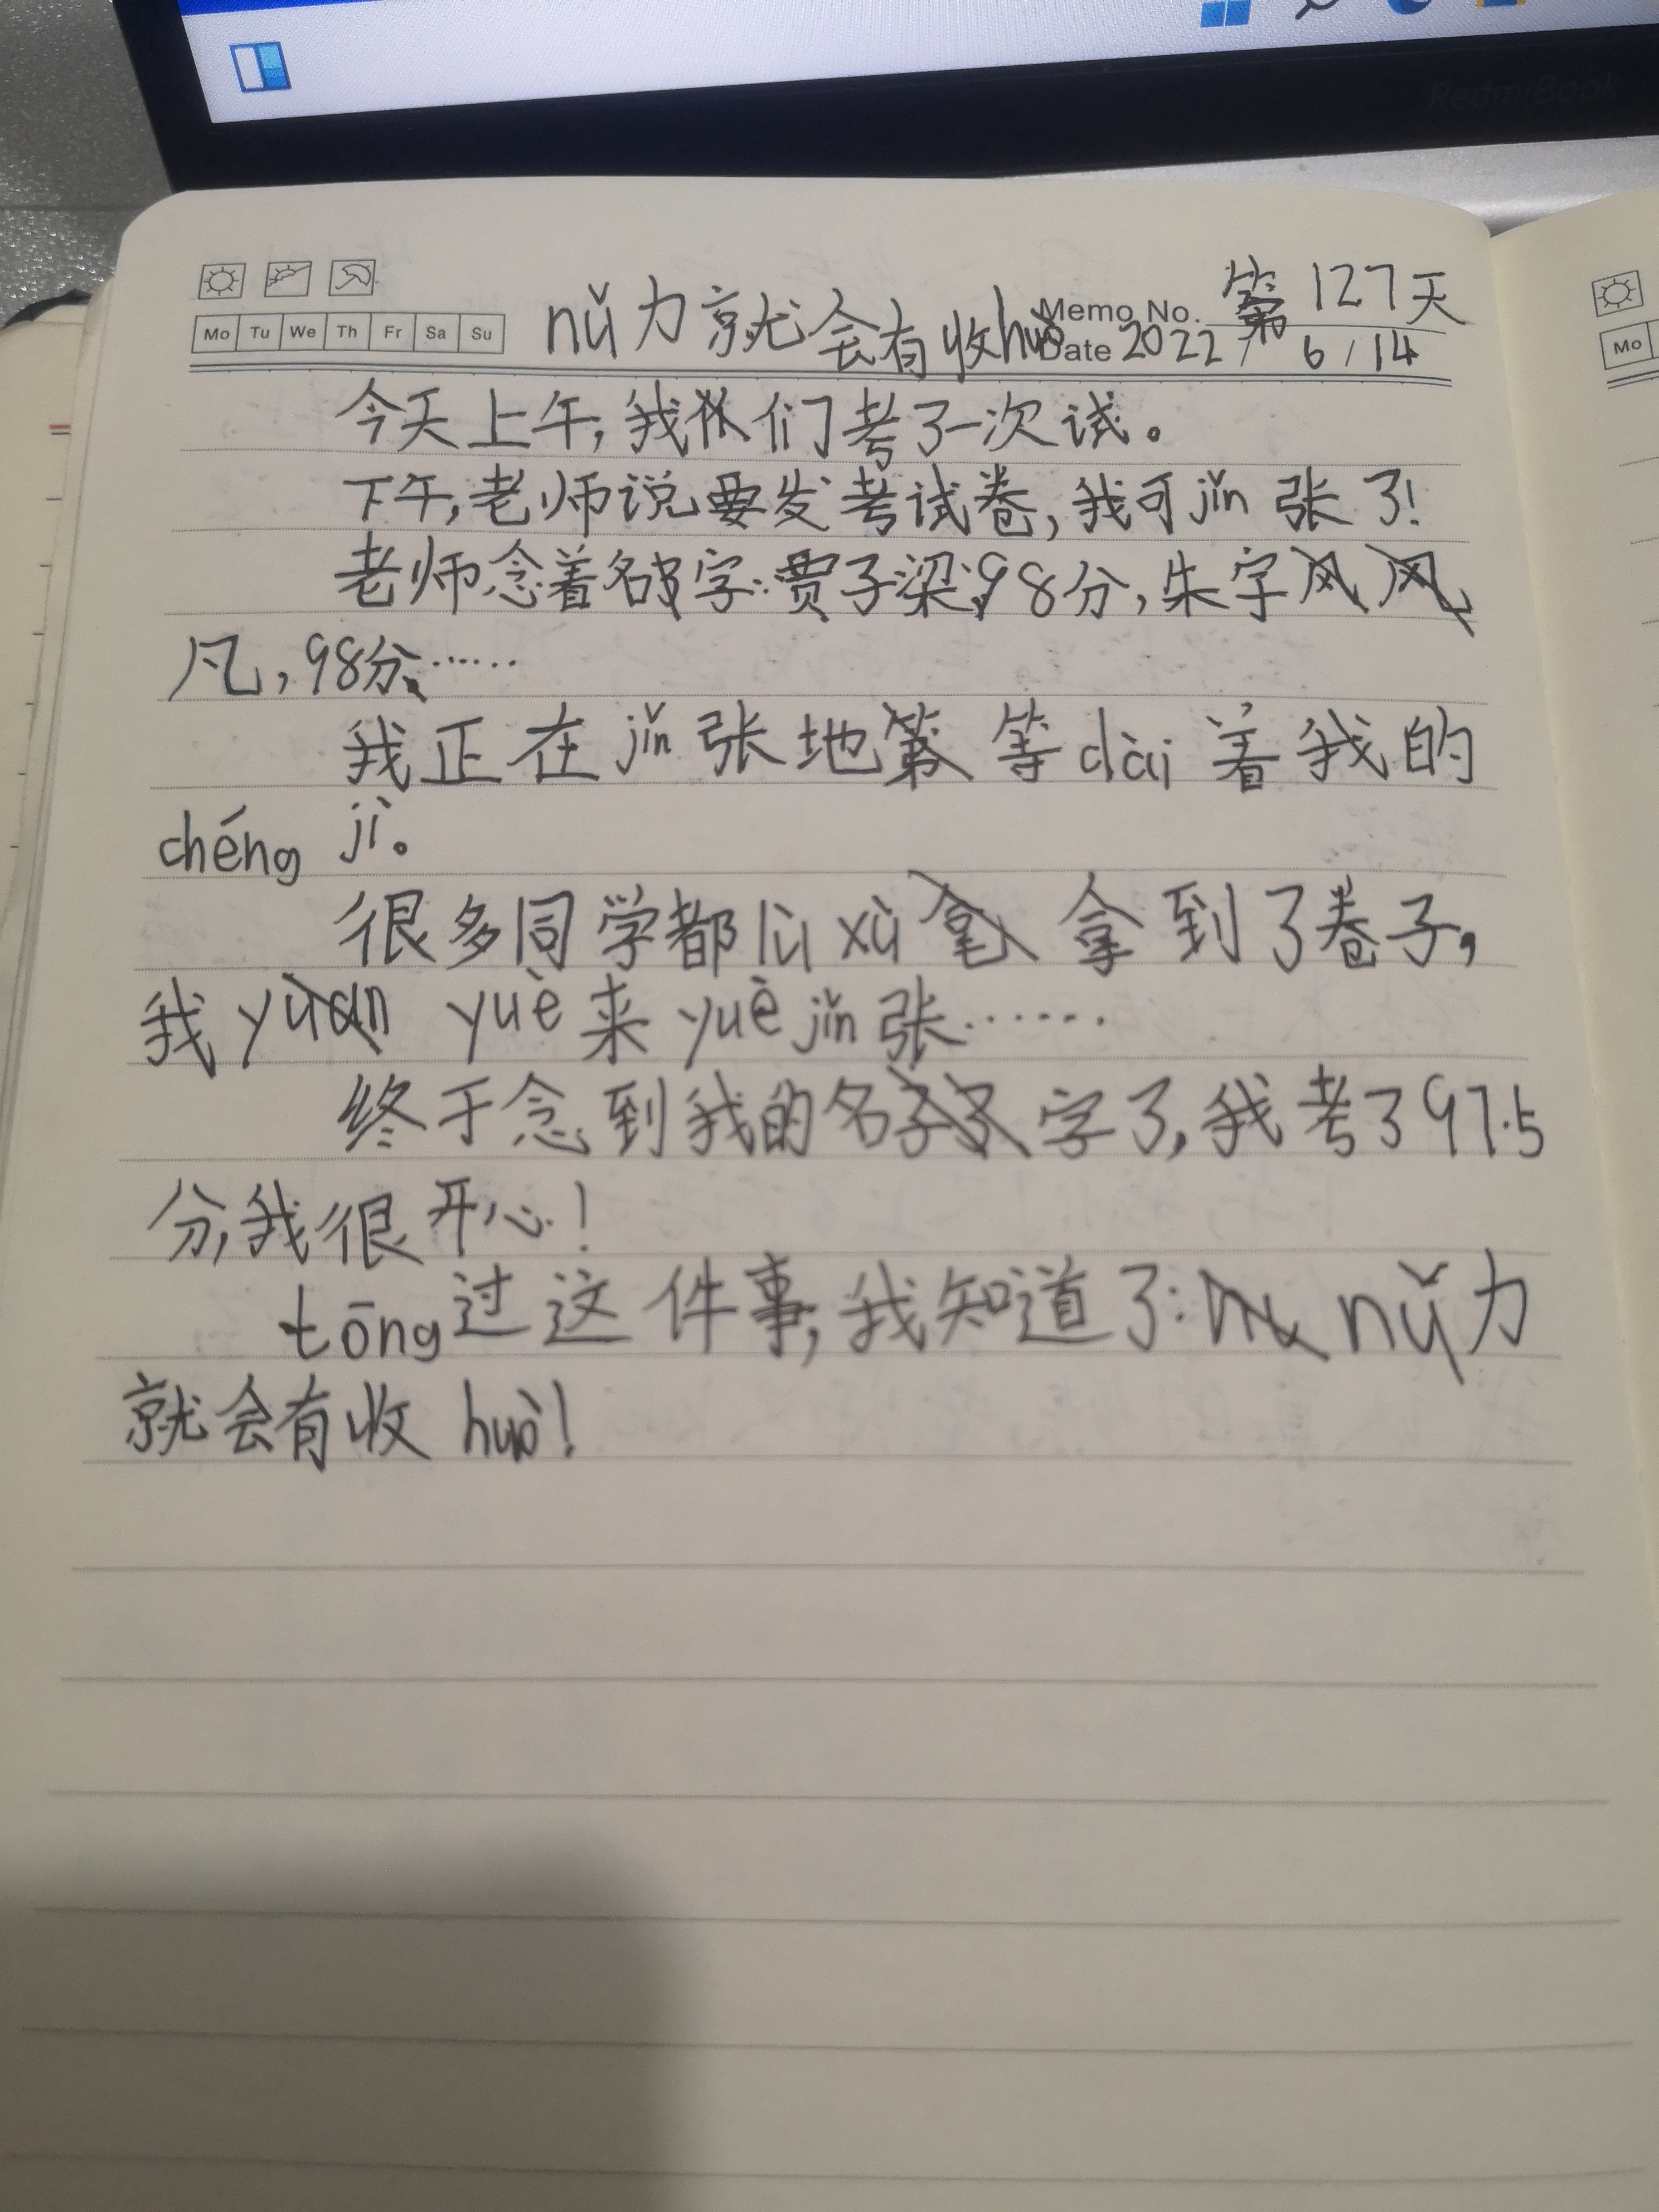 RedmiBook
第127天
Mo Tu We Th Fr Sa Su
nǔ力就会有收huò
Memo No.
Date 2022 / 6 / 14
Mo
今天上午,我们考了一次试。
下午,老师说要发考试卷,我可jǐn张了!
老师念着名字:贾子梁,98分,朱宇
凡,98分、……
我正在jǐn张地等dài着我的
chéng jì。
很多同学都lù xù拿到了卷子,
我yuè来yuè jǐn张……
终于念到我的名字了,我考了97.5
分,我很开心!
tōng过这件事,我知道了:nǔ力
就会有收huò!